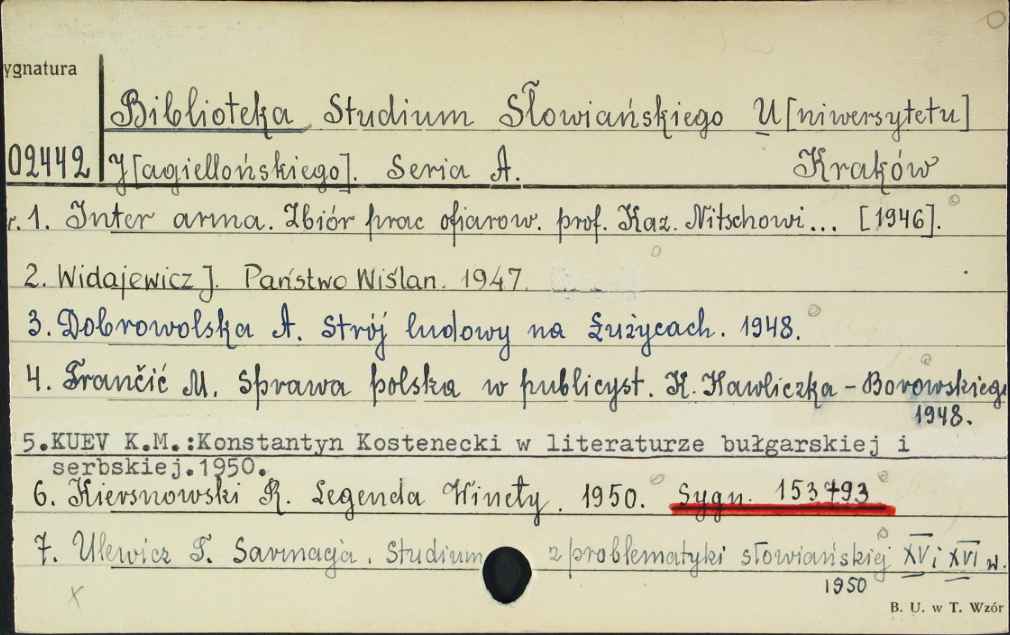 ygnatura
Biblioteka Studium Słowiańskiego U[niwersytetu]
02442 J[agiellońskiego]. Seria A. Kraków
r. 1. Inter arma. Zbiór prac ofiarow. prof. Kaz. Nitschowi... [1946].
2. Widajewicz J. Państwo Wiślan. 1947.
3. Dobrowolska A. Strój ludowy na Łużycach. 1948.
4. Frančić M. Sprawa polska w publicyst. K. Hawliczka - Borowskiego
1948.
5.KUEV K.M.:Konstantyn Kostenecki w literaturze bułgarskiej i
serbskiej.1950.
6. Kiersnowski R. Legenda Winety. 1950. Sygn. 153793
7. Ulewicz T. Sarmacja. Studium z problematyki słowiańskiej XV i XVI w.
1950
X
B. U. w T. Wzór